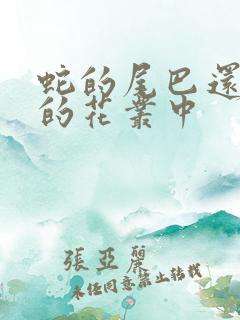 蛇的尾巴還
的花叢中
張亞麗
未經同意禁止轉載